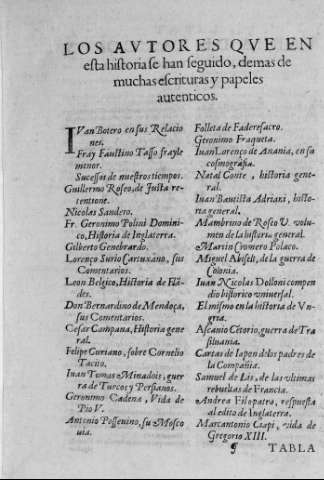 LOS AVTORES QVE EN
esta historia se han seguido, demas de
muchas escrituras y papeles
autenticos.
IVan Botero en sus Relacio
nes.
Fray Faustino Tasso frayle
menor.
Sucessos de nuestros tiempos.
Guillermo Roseo, de Iusta re-
tentione.
Nicolas Sandero.
Fr. Geronimo Polini Domini-
co, Historia de Inglaterra.
Gilberto Genebrardo.
Lorenço Surio Cartuxano, sus
Comentarios.
Leon Belgico, Historia de Flã-
des.
Don Bernardino de Mendoça,
sus Comentarios.
Cesar Campana, Historia gene
ral.
Felipe Curiano, sobre Cornelio
Tacito.
Iuan Tomas Minadois, guer
ra de Turcos y Persianos.
Geronimo Cadena, Vida de
Pio V.
Antonio Possevino, su Mosco
uia.
Folleta de Faderesacro.
Geronimo Fraqueta.
Iuan Lorenço de Anania, en su
cosmografia.
Natal Conte, historia gene-
ral.
Iuan Bautista Adriani, histo-
ria general.
Mambrino de Rosco V. volu-
men de la historia general.
Martin Cromero Polaco.
Miguel Abiselt, de la guerra de
Colonia.
Iuan Nicolas Dolloni compen
dio historico vniuersal.
El mismo en la historia de Vn-
gria.
Ascanio Cetorio, guerra de Tra
siluania.
Cartas de Iapon de los padres de
la Compañia.
Samuel de Lis, de las vltimas
rebueltas de Francia.
Andrea Filopatro, respuesta
al edito de Inglaterra.
Marcantonio Ciapi, vida de
Gregorio XIII.
¶ TABLA